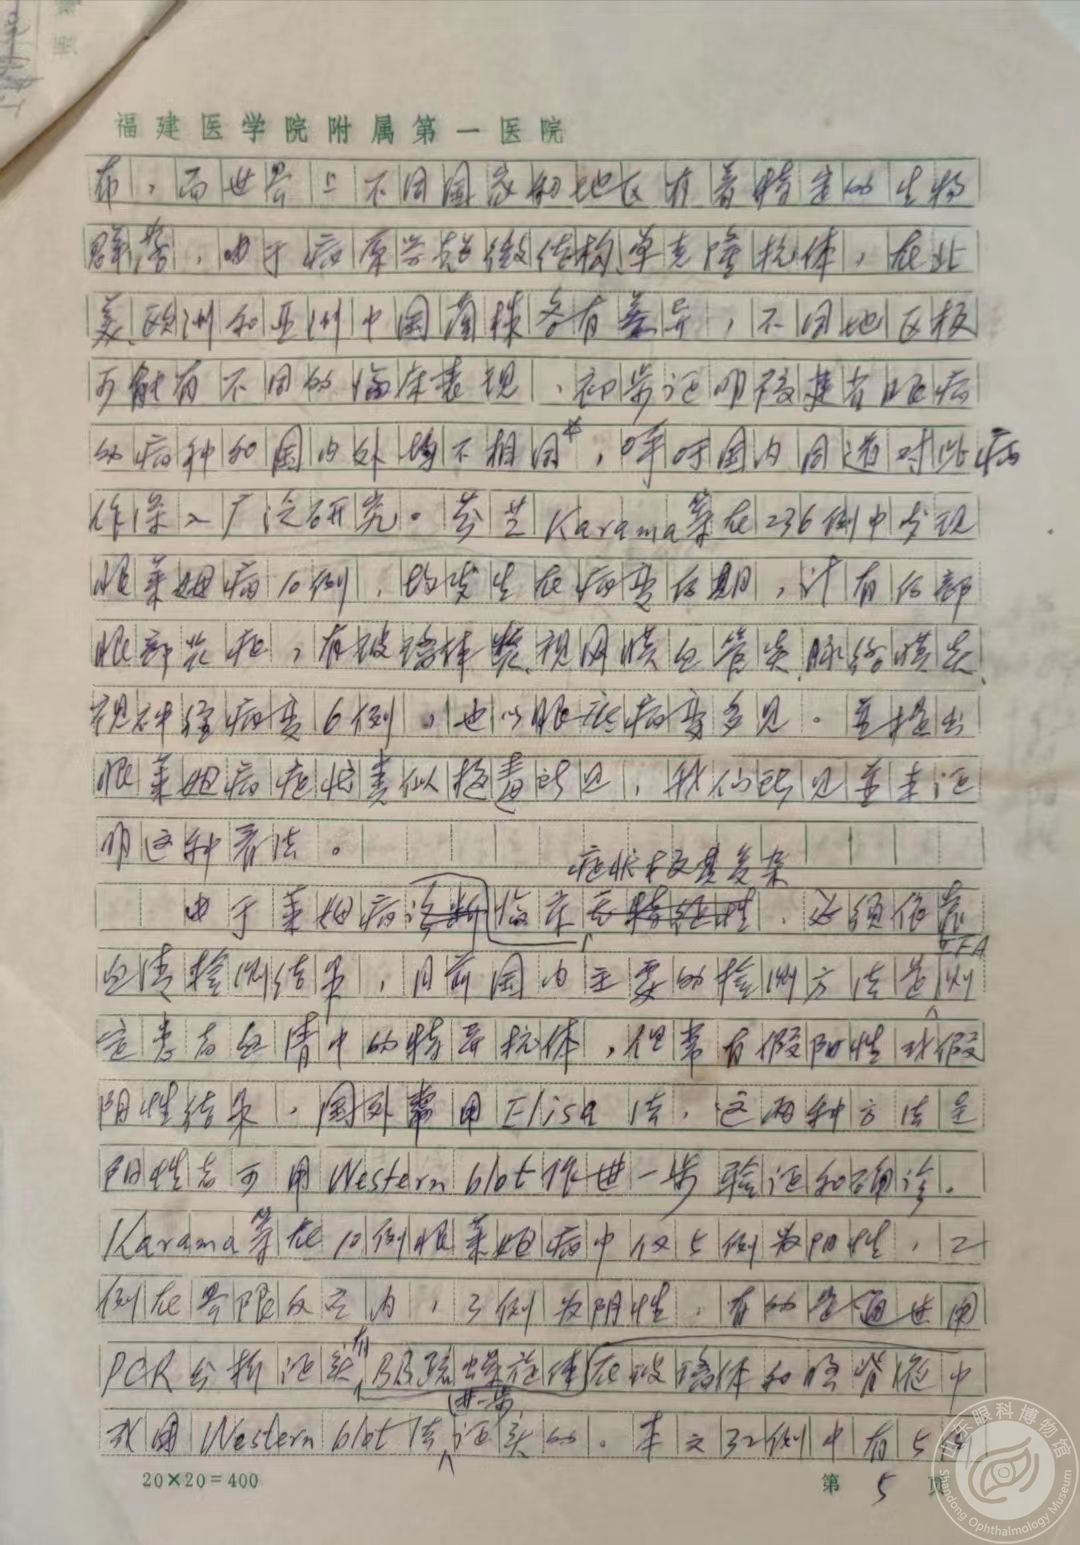 福建医学院附属第一医院
布，而世界上不同国家和地区有着特定的生物
群落，由于病原学超微结构、单克隆抗体，在北
美、欧洲和亚洲中国菌株各有差异，不同地区极
可能有不同的临床表现，初步证明福建省眼病
的病种和国内外均不相同*，呼吁国内同道对此病
作深入广泛研究。芬兰Karama等在236例中发现
眼莱姆病10例，均发生在病变后期，计有后部
眼部炎症，有玻璃体炎、视网膜血管炎、脉络膜炎、
视神经病变6例，也以眼底病变多见。并提出
眼莱姆病症状类似梅毒所见，我们所见并未证
明这种看法。
症状极其复杂
由于莱姆病诊断临床无特征性，必须依靠
IFA
血清检测结果，目前国内主要的检测方法是测
定患者血清中的特异抗体，但常有假阳性或假
阴性结果，国外常用Elisa法，这两种方法是
阳性者可用Western blot作进一步验证和确诊。
Karama等在10例眼莱姆病中仅5例为阳性，2
例在界限反应内，3例为阴性，有的是通过用
有
PCR分析证实BB疏螺旋体在玻璃体和脑脊液中
进一步
或用Western blot法证实的。本文32例中有5例
20×20=400
第5页
山东眼科博物馆
Shandong Ophthalmology Museum